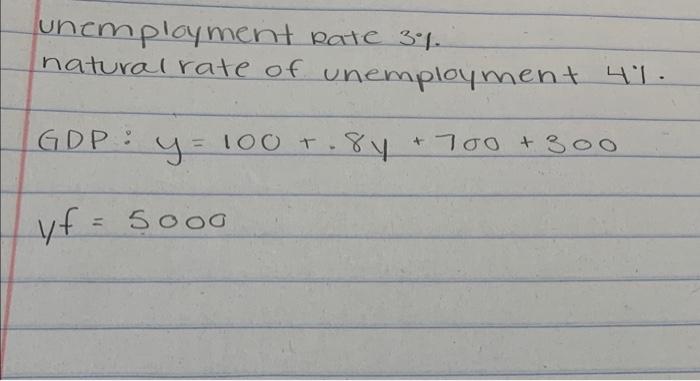 unemployment rate 3%.
natural rate of unemployment 4%.
GDP: y = 100 + .8y + 700 + 300
yf = 5000